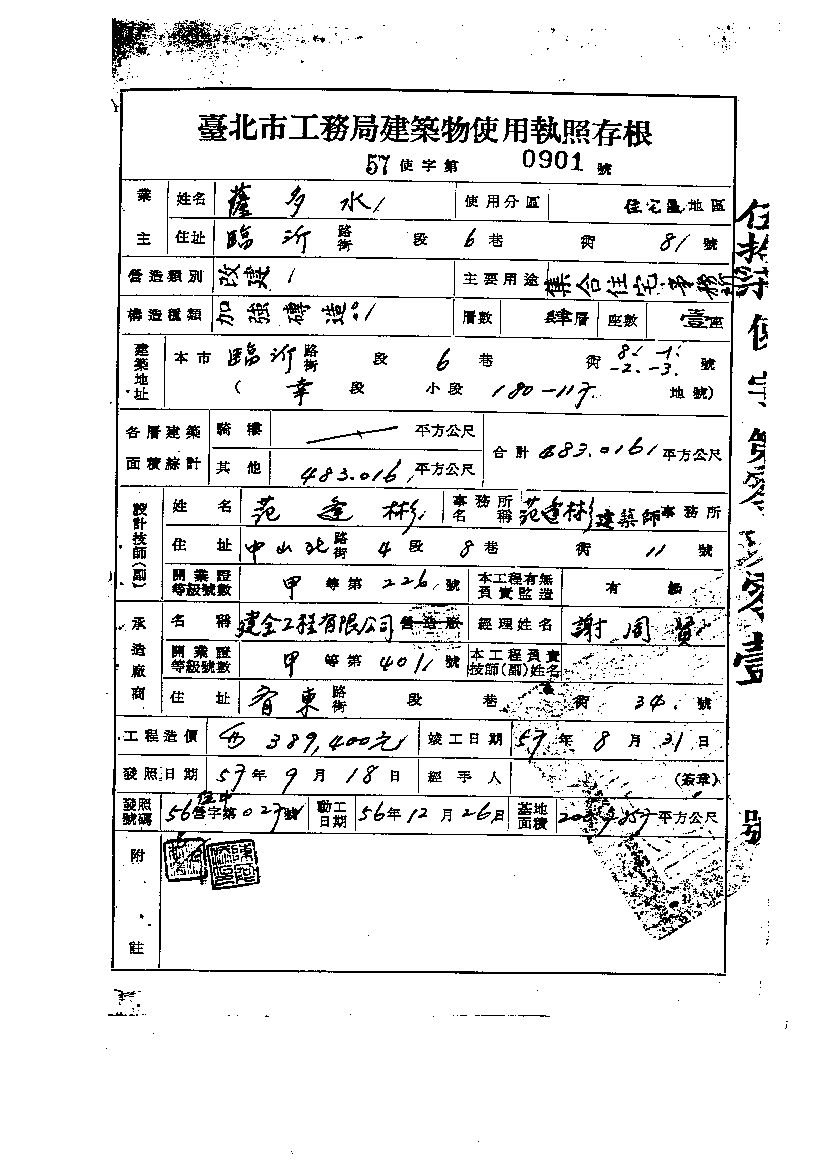 臺北市工務局建築物使用執照存根
57使字第 0901 號
業主 姓名 薩多水 使用分區 住宅區地區
住址 臨沂 路街 段 6巷 街 81號
營造類別 改建 主要用途 集合住宅、事務所
構造種類 加強磚造 層數 肆層 座數 壹座
建築地址 本市 臨沂 路街 段 6巷 街 號
(幸段 小段 地號)
各層建築面積綜計 騎樓 平方公尺 合計 483.016 平方公尺
其他 483.016 平方公尺
設計技師(副) 姓名 范逢彬 事務所名稱 范逢彬建築師事務所
住址 中山北 路街 4段 8巷 街 11號
開業證等級號數 甲等第226號 本工程有無負責監造 有
承造廠商 名稱 建全工程有限公司 營造廠 經理姓名 謝周賢
開業證等級號數 甲等第401號 本工程負責技師(副)姓名
住址 路街 段 巷 街 34號
工程造價 389,400元 竣工日期 57年8月31日
發照日期 57年9月18日 經手人 (簽章)
發照號碼 56營字第027號 動工日期 56年12月26日 基地面積 平方公尺
附註
伍拾柒使字第零玖零壹號